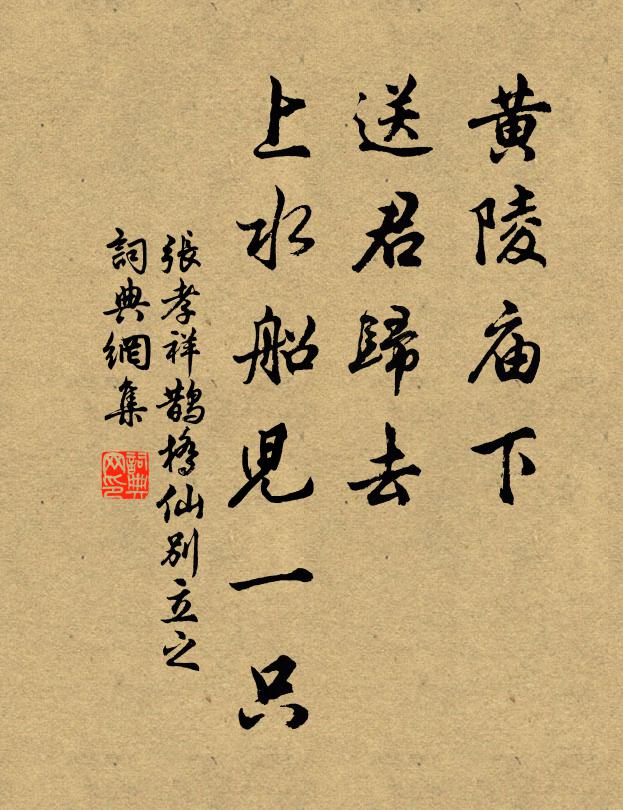 黄陵庙下
送君歸去
上水船兒一只
張孝祥鵲橋仙別立之
詞典網集
詞典网印